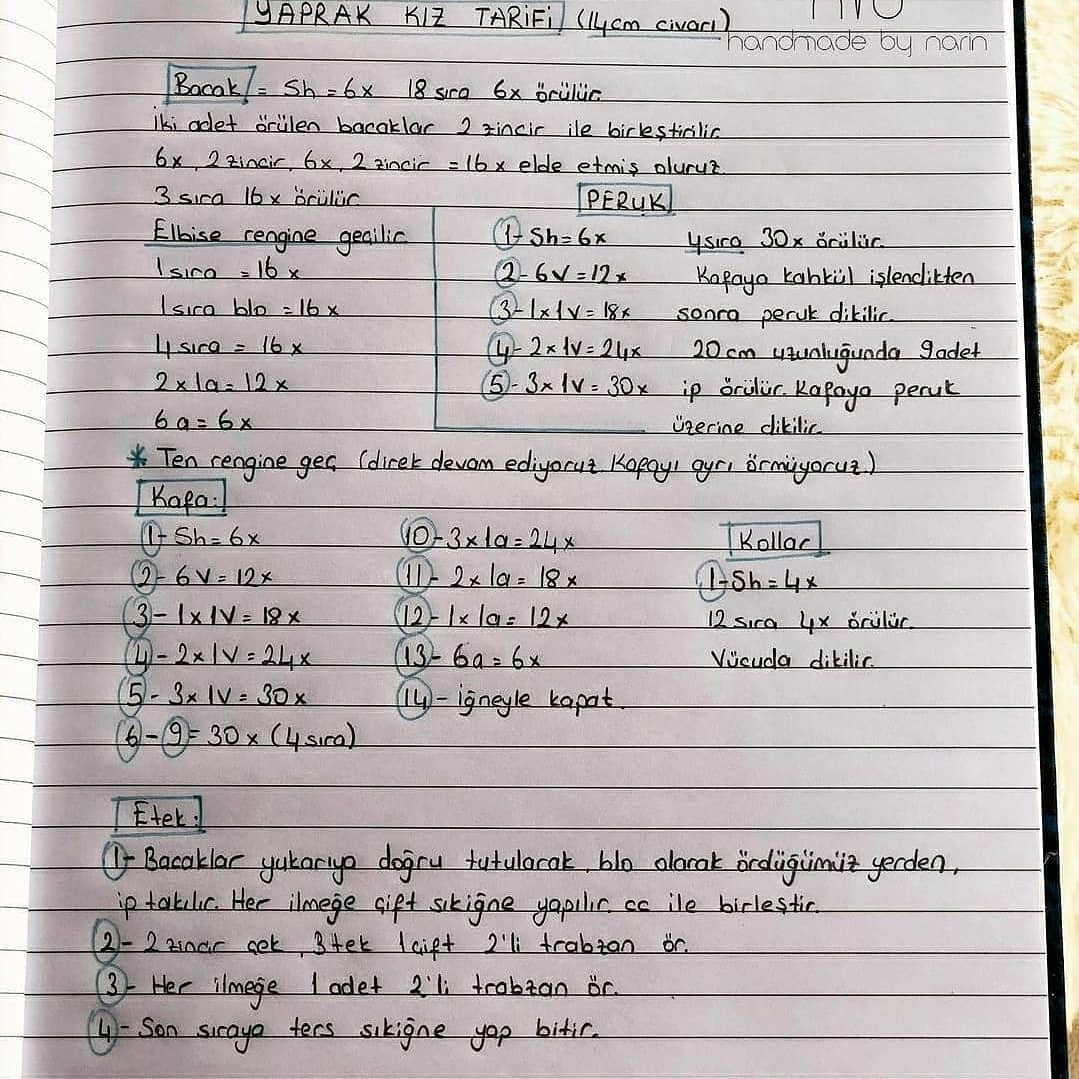 YAPRAK KIZ TARİFİ (14cm civarı)
handmade by narin
Bacak = Sh = 6x 18 sıra 6x örülür.
İki adet örülen bacaklar 2 zincir ile birleştirilir
6x, 2 zincir, 6x, 2 zincir = 16x elde etmiş oluruz.
3 sıra 16x örülür
Elbise rengine geçilir
1 sıra = 16x
1 sıra blo = 16x
4 sıra = 16x
2x1a = 12x
6a = 6x
PERUK
1- Sh = 6x
2- 6V = 12x
3- 1x1V = 18x
4- 2x1V = 24x
5- 3x1V = 30x
4 sıra 30x örülür.
Kafaya kahkül işlendikten
sonra peruk dikilir.
20 cm uzunluğunda 9 adet
ip örülür. Kafaya peruk
üzerine dikilir.
* Ten rengine geç (direk devam ediyoruz Kafayı ayrı örmüyoruz.)
Kafa:
1- Sh = 6x
2- 6V = 12x
3- 1x1V = 18x
4- 2x1V = 24x
5- 3x1V = 30x
6-9 = 30x (4 sıra)
10- 3x1a = 24x
11- 2x1a = 18x
12- 1x1a = 12x
13- 6a = 6x
14- iğneyle kapat.
Kollar
1- Sh = 4x
12 sıra 4x örülür.
Vücuda dikilir.
Etek:
1- Bacaklar yukarıya doğru tutulacak, blo olarak ördüğümüz yerden,
ip takılır. Her ilmeğe çift sıkiğne yapılır. cc ile birleştir.
2- 2 zincir çek, 3 tek 1 çift 2'li trabzan ör.
3- Her ilmeğe 1 adet 2'li trabzan ör.
4- Son sıraya ters sıkiğne yap bitir.